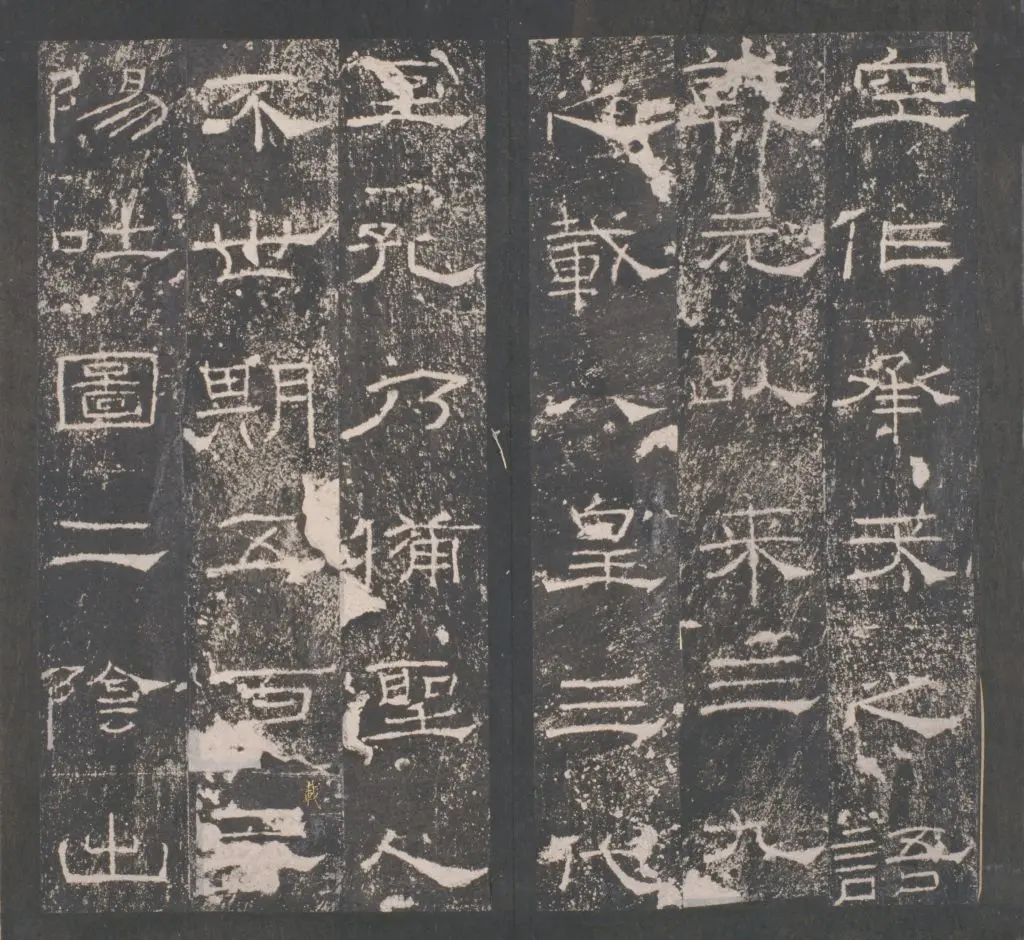 空作承天之語
乾元以來三九
之載八皇三代
至孔乃備聖人
不世期五百三
陽吐圖二陰出